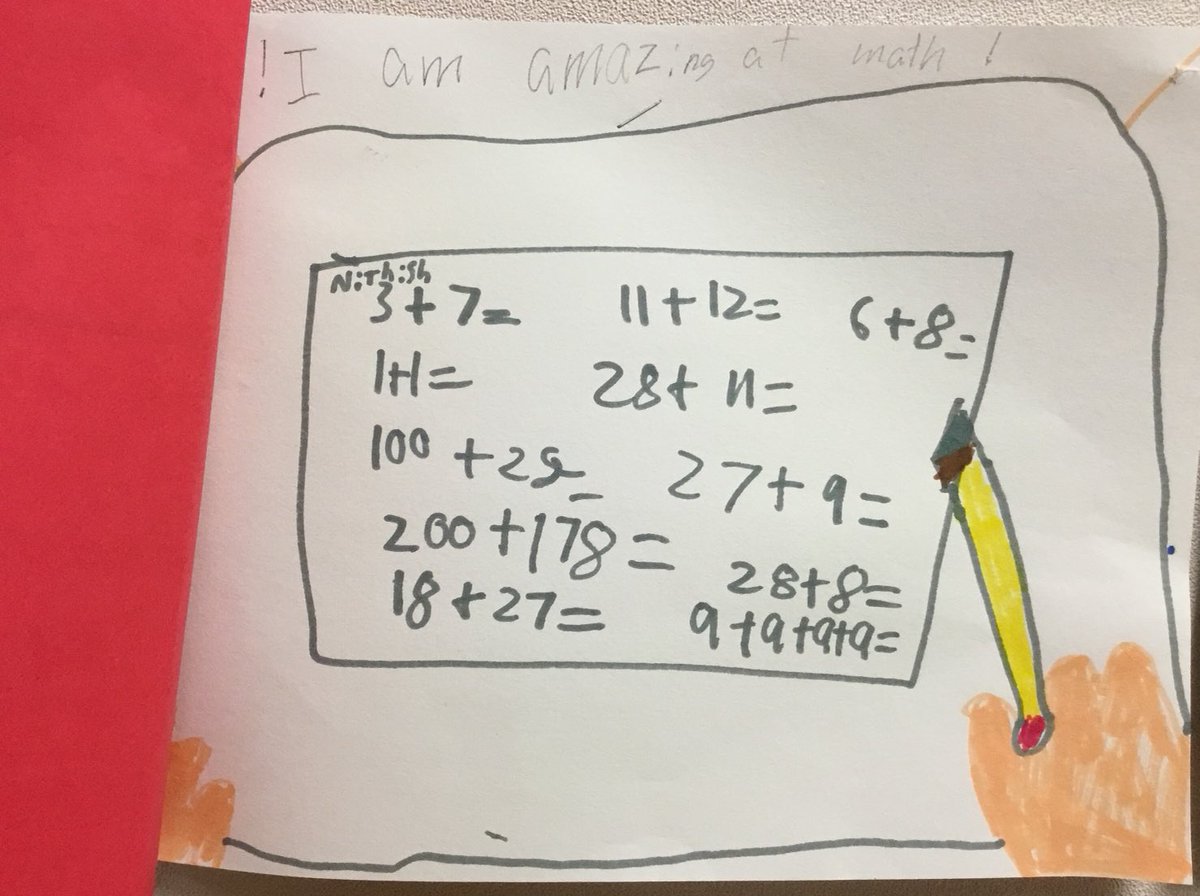 !I am amazing at math!
Nithish
3+7= 11+12= 6+8=
1+1= 28+11=
100+28= 27+9=
200+178=
18+27= 28+8=
9+9+9+9=